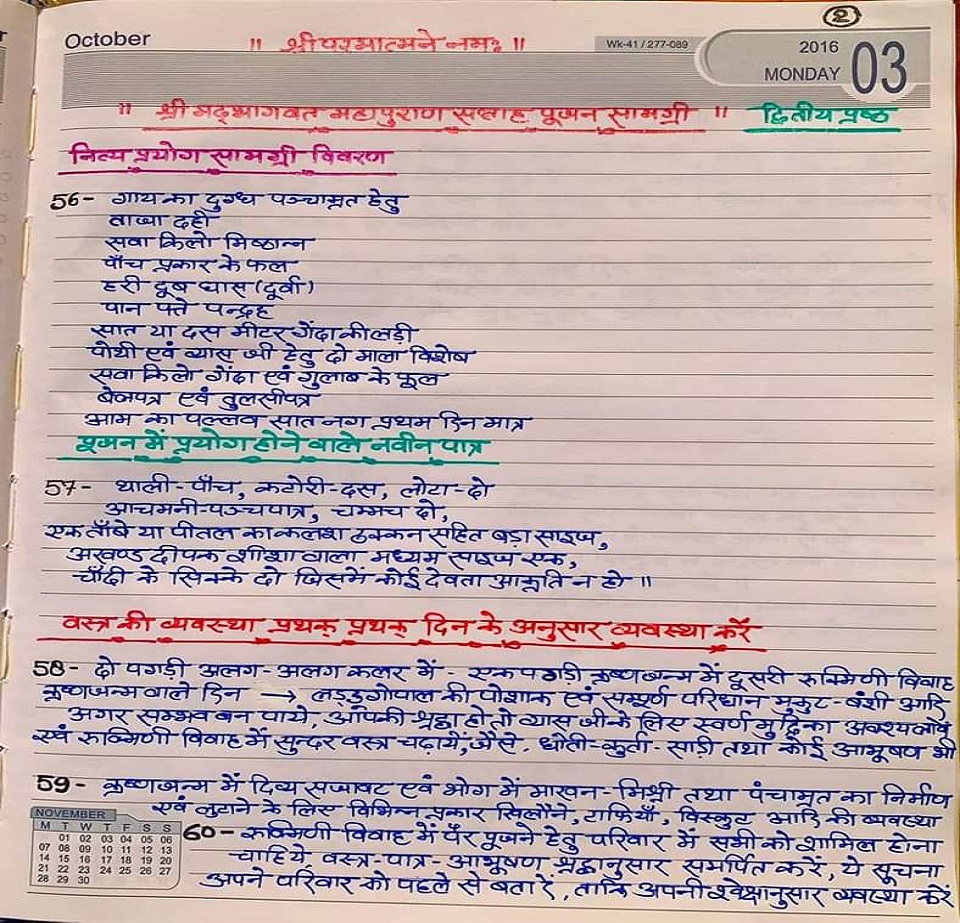 ②
October
॥ श्री परमात्मने नमः ॥
Wk-41 / 277-089
2016
MONDAY
03
॥ श्री मद्भागवत महापुराण सप्ताह पूजन सामग्री ॥ द्वितीय प्रष्ठ
नित्य प्रयोग सामग्री विवरण
56- गाय का दुग्ध पञ्चाम्रत हेतु
ताजा दही
सवा किलो मिष्ठान्न
पाँच प्रकार के फल
हरी दूब घास (दूर्वा)
पान पत्ते पन्द्रह
सात या दस मीटर गेंदा की लड़ी
पोथी एवं व्यास जी हेतु दो माला विशेष
सवा किलो गेंदा एवं गुलाब के फूल
बेलपत्र एवं तुलसीपत्र
आम का पल्लव सात नग प्रथम दिन मात्र
पूजन में प्रयोग होने वाले नवीन पात्र
57- थाली-पाँच, कटोरी-दस, लोटा-दो
आचमनी-पञ्चपात्र, चम्मच दो,
एक ताँबे या पीतल का कलश ढक्कन सहित बड़ा साइज,
अखण्ड दीपक शीशा वाला मध्यम साइज एक,
चाँदी के सिक्के दो जिसमें कोई देवता आकृति न हो ॥
वस्त्र की व्यवस्था प्रथक् प्रथक् दिन के अनुसार व्यवस्था करें
58- दो पगड़ी अलग-अलग कलर में - एक पगड़ी कृष्णजन्म में दूसरी रुक्मिणी विवाह
कृष्णजन्म वाले दिन → लड्डू गोपाल की पोशाक एवं सम्पूर्ण परिधान मुकुट-बंशी आदि
अगर सम्भव बन पाये, आपकी श्रद्धा हो तो व्यास जी के लिए स्वर्ण मुद्रिका अवश्य लावें
एवं रुक्मिणी विवाह में सुन्दर वस्त्र चढ़ायें, जैसे, धोती-कुर्ता-साड़ी तथा कोई आभूषण भी
59- कृष्णजन्म में दिव्य सजावट एवं भोग में माखन-मिश्री तथा पंचाम्रत का निर्माण
एवं लुटाने के लिए विभिन्न प्रकार खिलौने, टाफियाँ, विस्कुट आदि की व्यवस्था
60- रुक्मिणी विवाह में पैर पूजने हेतु परिवार में सभी को शामिल होना
चाहिये, वस्त्र-पात्र-आभूषण श्रद्धानुसार समर्पित करें, ये सूचना
अपने परिवार को पहले से बता दें, ताकि अपनी स्वेक्षानुसार व्यवस्था करें
NOVEMBER
M T W T F S S
01 02 03 04 05 06
07 08 09 10 11 12 13
14 15 16 17 18 19 20
21 22 23 24 25 26 27
28 29 30